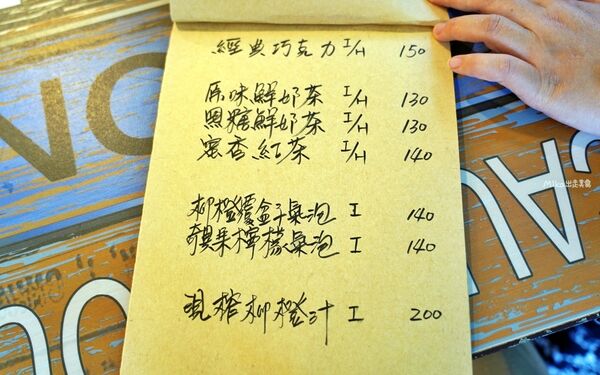 經典巧克力 I/H 150
原味鮮奶茶 I/H 130
黑糖鮮奶茶 I/H 130
蜜香紅茶 I/H 140
柳橙覆盆子氣泡 I 140
奇異果檸檬氣泡 I 140
現榨柳橙汁 I 200
Mika出走美食